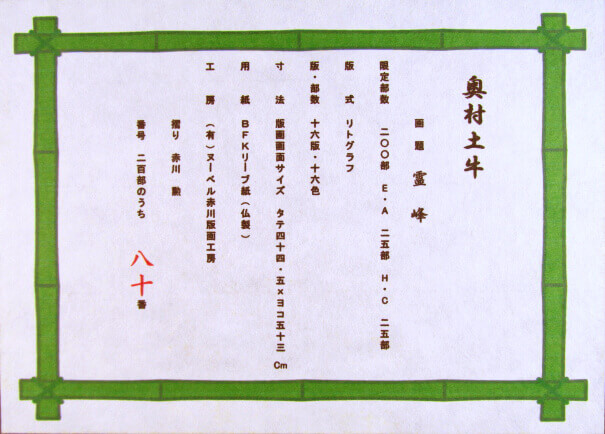 奥村土牛
画題 霊峰
限定部数 二〇〇部 E・A 二五部 H・C 二五部
版式 リトグラフ
版・部数 十六版・十六色
寸法 版画画面サイズ タテ四十四・五×ヨコ五十三Cm
用紙 BFKリーブ紙(仏製)
工房 (有)ヌーベル赤川版画工房
摺り 赤川 勲
番号 二百部のうち 八十番